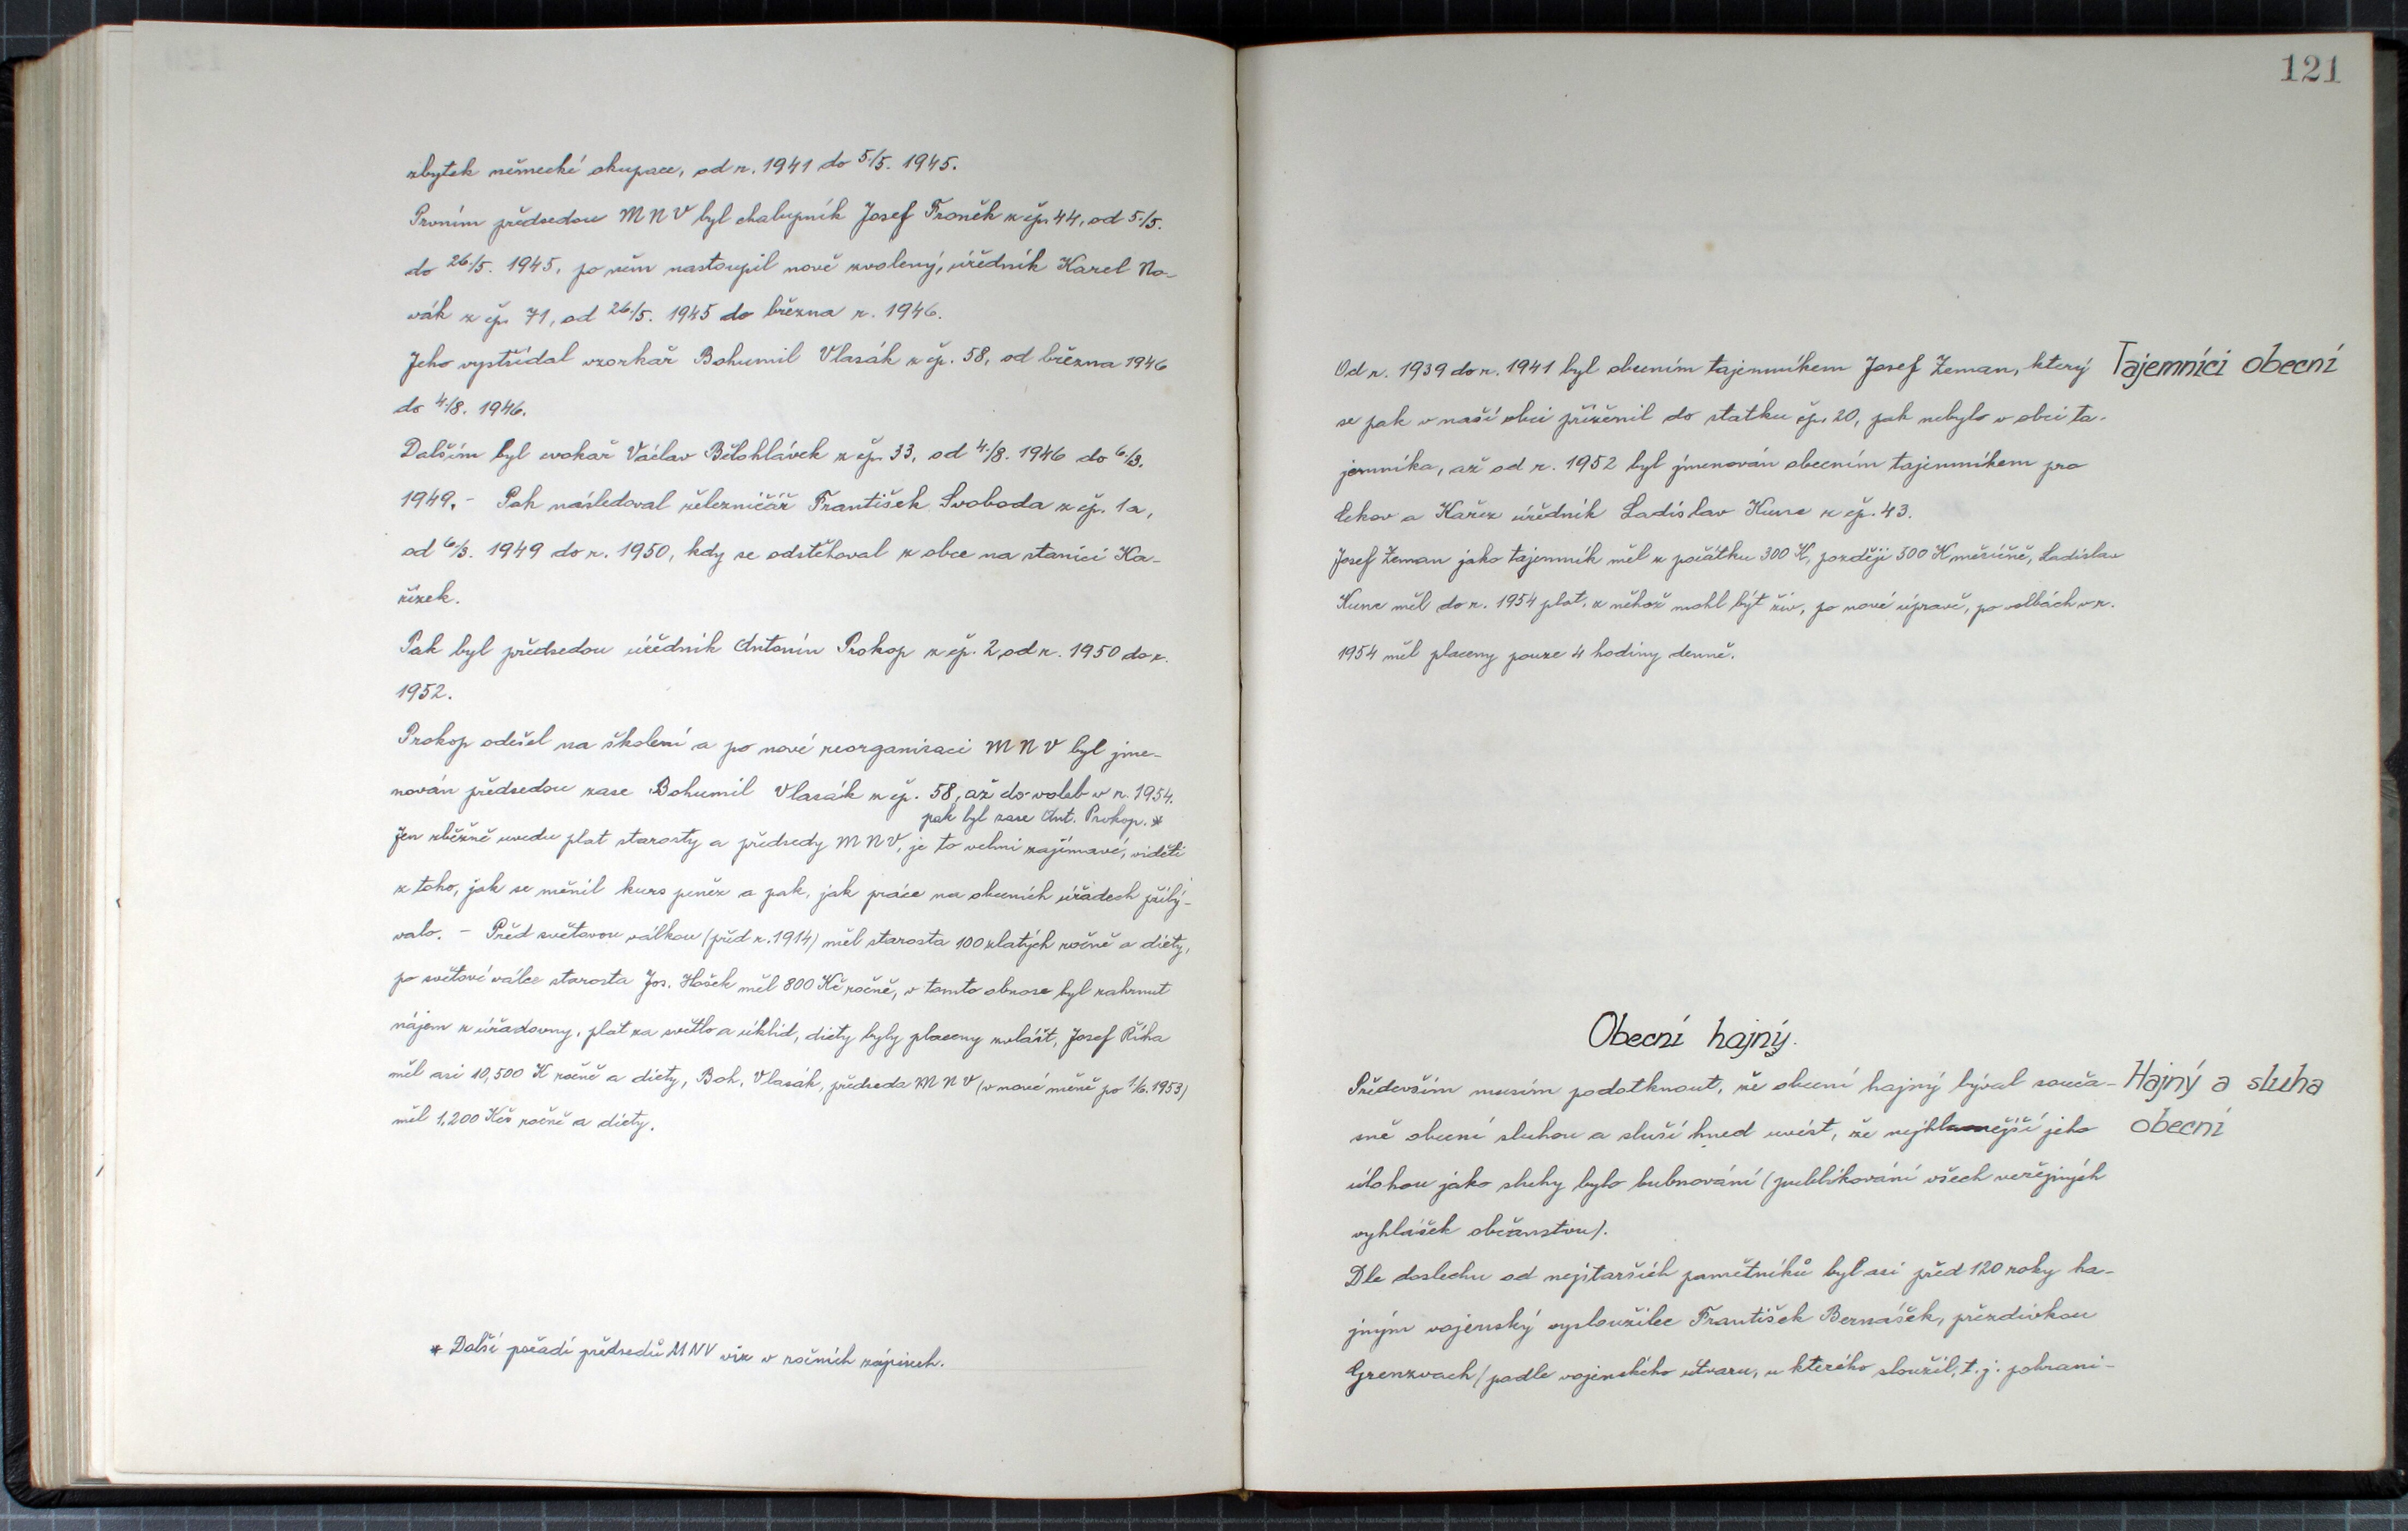 zbytek německé okupace, od r. 1941 do 5./5. 1945.
Prvním předsedou MNV byl chalupník Josef Froněk z čp. 44, od 5./5.
do 26./5. 1945, po něm nastoupil nově zvolený, úředník Karel No-
vák z čp. 71, od 26./5. 1945 do března r. 1946.
Jeho vystřídal vzorkař Bohumil Vlasák z čp. 58, od března 1946
do 4./8. 1946.
Dalším byl cvokař Václav Bělohlávek z čp. 33, od 4./8. 1946 do 6./3.
1949. - Pak následoval železničář František Svoboda z čp. 1a,
od 6./3. 1949 do r. 1950, kdy se odstěhoval z obce na stanici Ka-
řízek.
Pak byl předsedou úředník Antonín Prokop z čp. 2 od r. 1950 do r.
1952.
Prokop odešel na školení a po nové reorganisaci MNV byl jme-
nován předsedou zase Bohumil Vlasák z čp. 58, až do voleb v r. 1954.
pak byl zase Ant. Prokop. *
Jen zběžně uvedu plat starosty a předsedy MNV, je to velmi zajímavé, viděti
z toho, jak se měnil kurs peněz a pak, jak práce na obecních úřadech přibý-
valo. - Před světovou válkou (před r. 1914) měl starosta 100 zlatých ročně a diety,
po světové válce starosta Jos. Hošek měl 800 Kč ročně, v tomto obnose byl zahrnut
nájem z úřadovny, plat za světlo a úklid, diety byly placeny zvlášt, Josef Říha
měl asi 10,500 K ročně a diety, Boh. Vlasák, předseda MNV (v nové měně po 1/6. 1953)
měl 1,200 Kčs ročně a diety.
* Další pořadí předsedů MNV viz v ročních zápisech.
121
Od r. 1939 do r. 1941 byl obecním tajemníkem Josef Zeman, který
Tajemníci obecní
se pak v naší obci přiženil do statku čp. 20, pak nebylo v obci ta-
jemníka, až od r. 1952 byl jmenován obecním tajemníkem pro
Cekov a Kařez úředník Ladislav Kunc z čp. 43.
Josef Zeman jako tajemník měl z počátku 300 K, později 500 K měsíčně, Ladislav
Kunc měl do r. 1954 plat, z něhož mohl být živ, po nové úpravě, po volbách v r.
1954 měl placeny pouze 4 hodiny denně.
Obecní hajný.
Především musím podotknout, že obecní hajný býval souča-
Hajný a sluha
obecní
sně obecní sluhou a sluší hned uvést, že nejhlavnější jeho
úlohou jako sluhy bylo bubnování (publikování všech veřejných
vyhlášek občanstvu).
Dle doslechu od nejstarších pamětníků byl asi před 120 roky ha-
jným vojenský vysloužilec František Bernášek, přezdívkou
Grenzwach (podle vojenského útvaru, u kterého sloužil, t. j. pohrani-